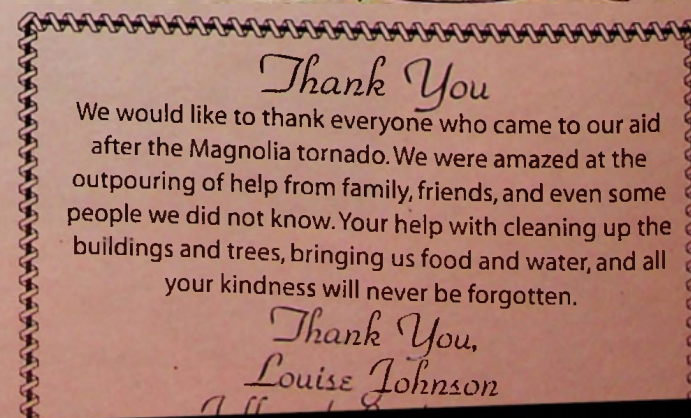 Thank You
We would like to thank everyone who came to our aid
after the Magnolia tornado. We were amazed at the
outpouring of help from family, friends, and even some
people we did not know. Your help with cleaning up the
buildings and trees, bringing us food and water, and all
your kindness will never be forgotten.
Thank You,
Louise Johnson